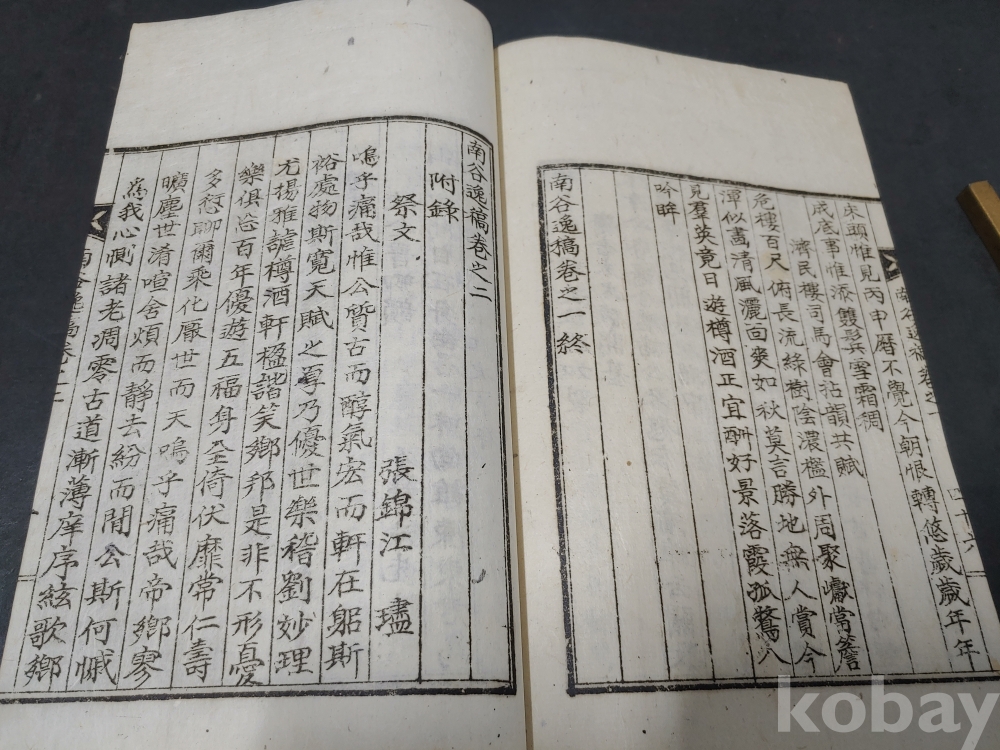 南谷逸稿卷之一 四十六
床頭惟見丙申曆不覺今朝恨轉悠歲歲年年
成底事惟添雙鬂雪霜稠
濟民樓司馬會拈韻共賦
危樓百尺俯長流綠樹陰濃檻外周聚巘當簷
潭似畵清風灑面爽如秋莫言勝地無人賞今
見羣英竟日遊樽酒正宜酬好景落霞孤鶩入
吟眸
南谷逸稿卷之一終
南谷逸稿卷之二
附錄
祭文
張錦江 璶
嗚乎痛哉惟公質古而醇氣宏而軒在躬斯
裕處物斯寬天賦之厚乃優世樂稽劉妙理
尤揚雅謔樽酒軒楹諧笑鄉邦是非不形憂
樂俱忘百年優遊五福身全倚伏靡常仁壽
多愆聊爾乘化厭世而天嗚乎痛哉帝鄉寥
曠塵世淆喧舍煩而靜去紛而閒公斯何慽
爲我心惻諸老凋零古道漸薄庠序絃歌鄉
南谷逸稿卷之二
kobay